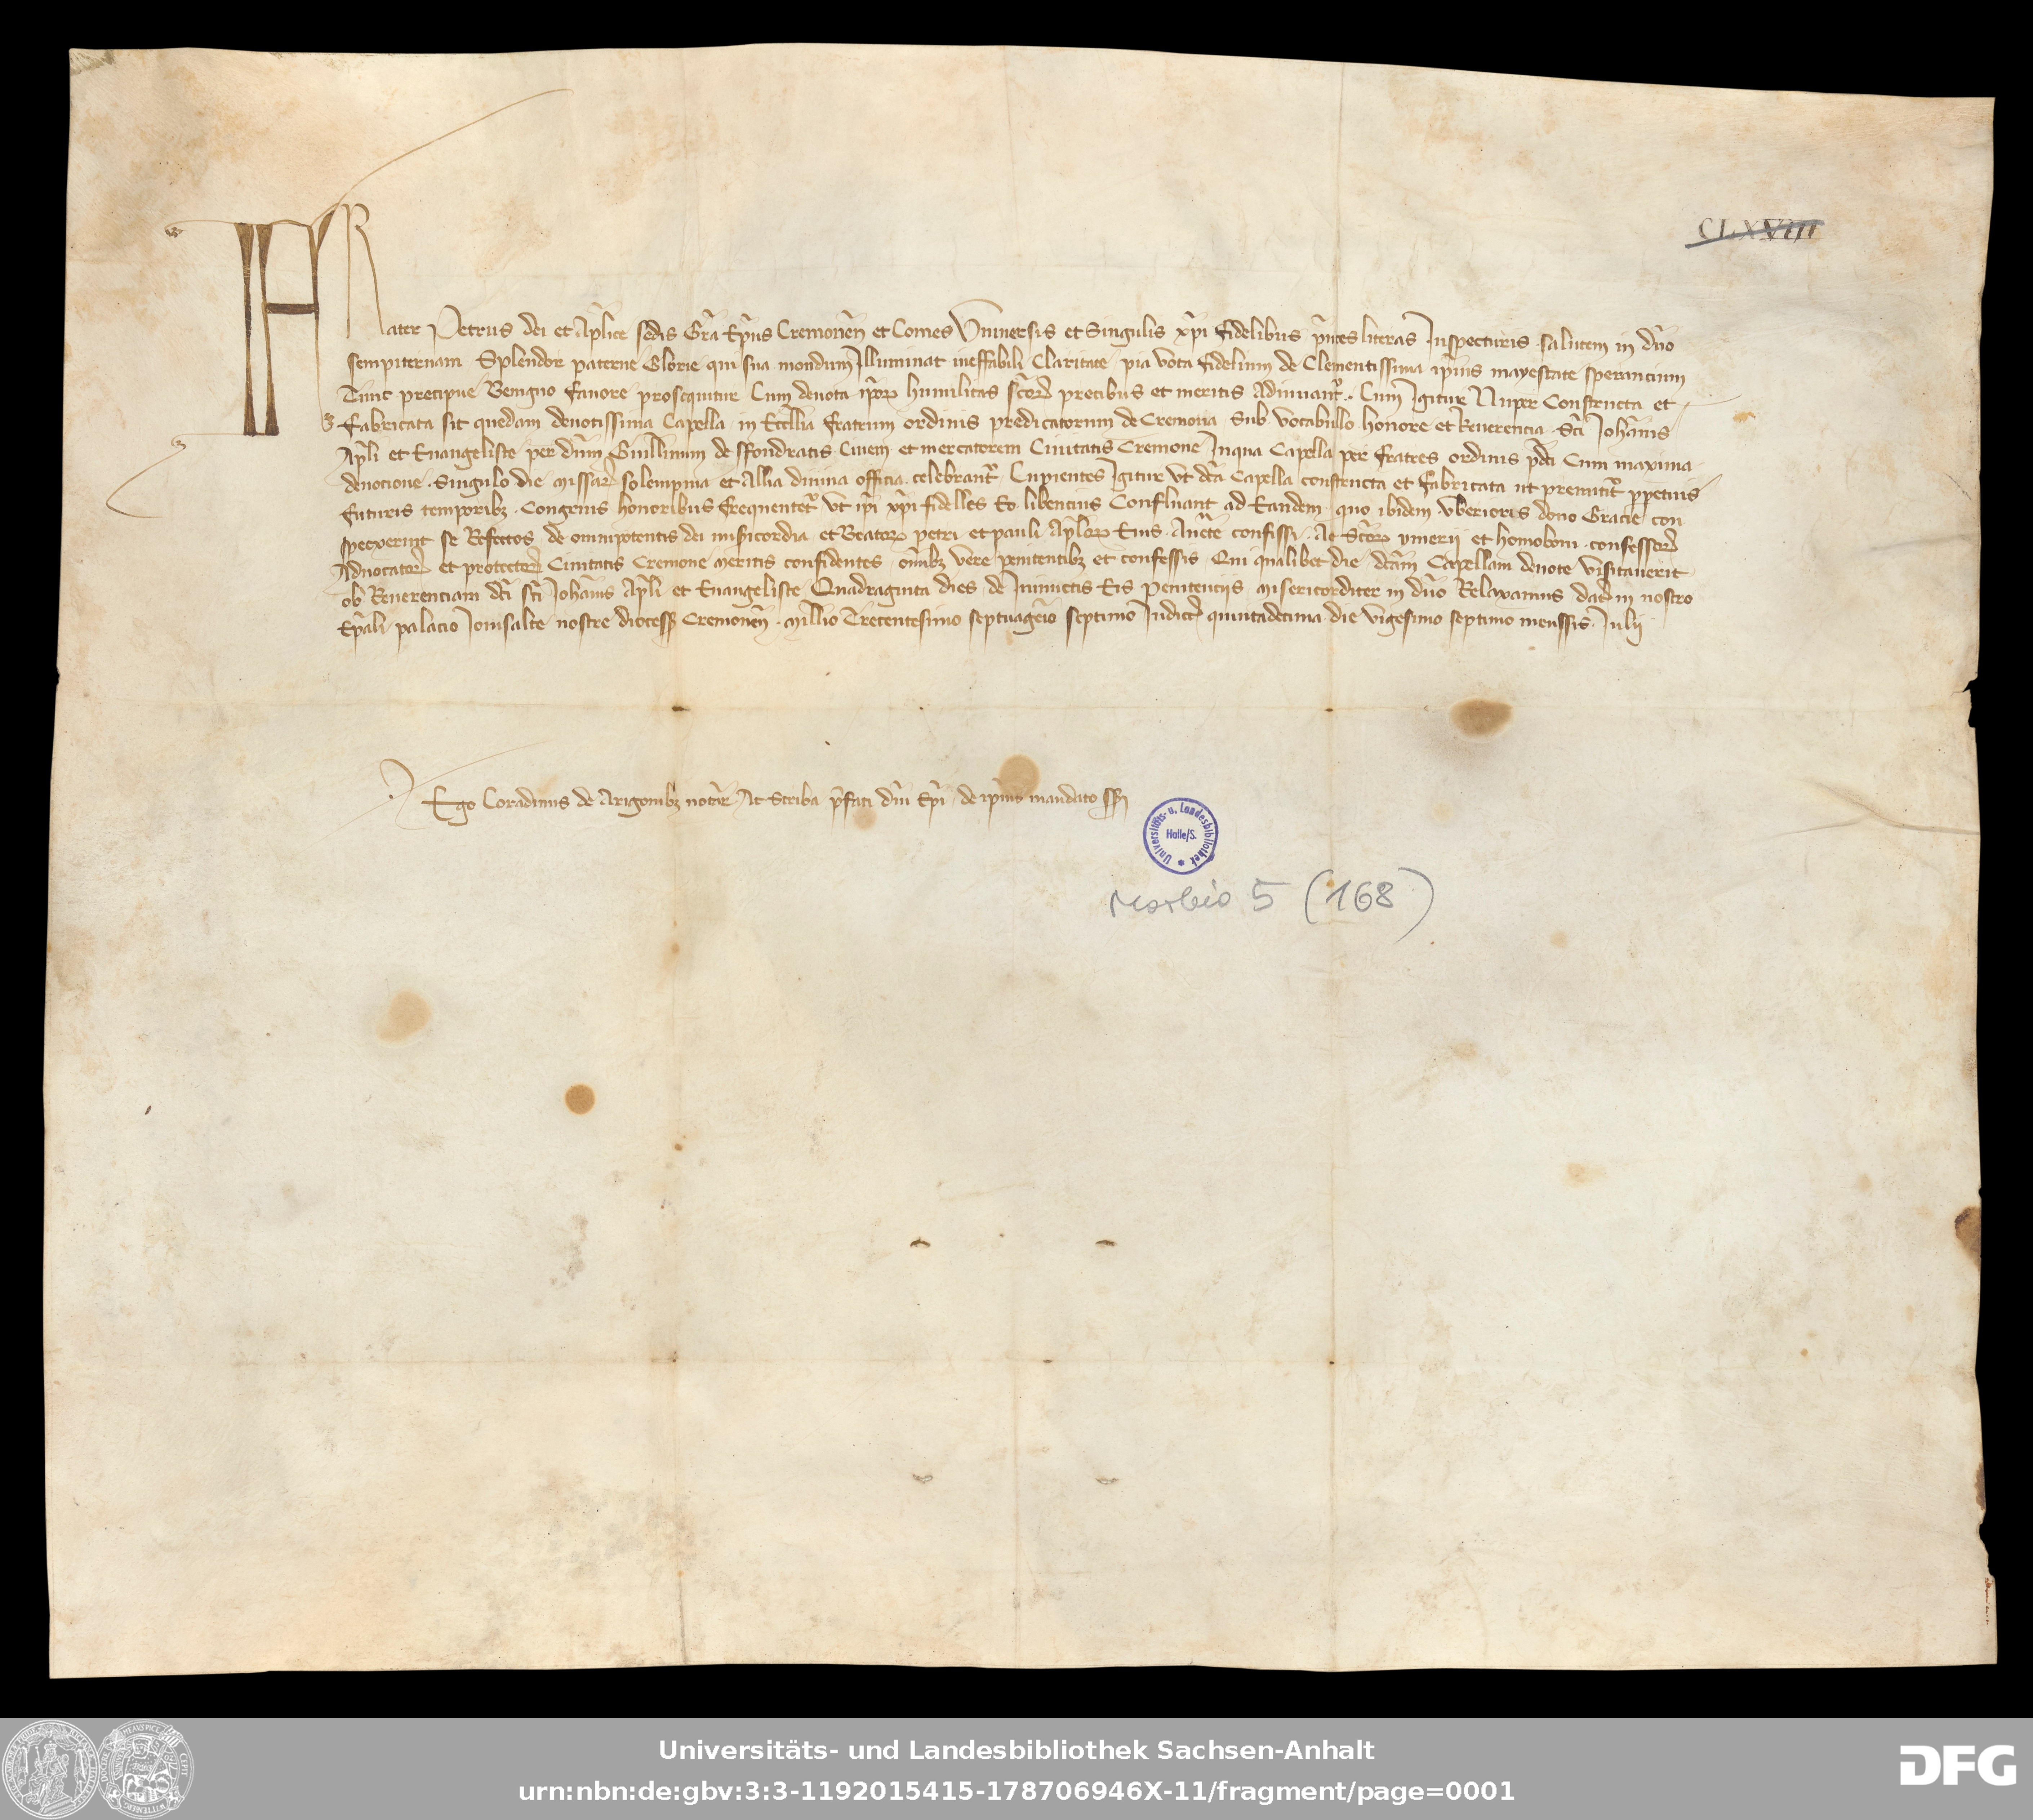 CLXVIII
FRater Petrus dei et Aplice sedis Gra Epus Cremonen et Comes Vniuersis et Singulis xpi fidelibus pntes literas Inspecturis salutem in dno
sempiternam Splendor paterne Glorie qui sua mondum Illuminat ineffabili Claritate pia vota fidelium de Clementissima ipius mayestate sperancium
Tunc precipue Benigno fauore prosequitur Cum deuota ipor humilitas scor precibus et meritis Adiuuant. Cum Igitur Nuper Constructa et
Fabricata sit quedam deuotissima Capella in Ecclia fratrum ordinis predicatorum de Cremona Sub vocabullo honore et Reuerencia Sci Johanis
Apli et Euangeliste per dnm Guillinum de sfondratis Ciuem et mercatorem Ciuitatis Cremone Inqua Capella per fratres ordinis pdci Cum maxima
deuocione. Singulo die missar solempnia et Allia diuina officia celebrant Cupientes Igitur vt dcta Capella constructa et fabricata ut premitit ppetuis
futuris temporibz. Congruis honoribus frequentet vt ipi xpi fidelles Eo libencius Confluant ad Eandem quo ibidem vberioris dono Gracie con
spexerint se Refectos de omnipotentis dei misicordia et Beator petri et pauli Aplor Eius Aucte confissi. Ac Scor ymerii et homoboni confessor
Aduocator et protector Ciuitatis Cremone meritis confidentes omibz vere penitentibz et confessis Qui qualibet die dcam Capellam deuote visitauerit
ob Reuerenciam dci sci Johanis Apli et Euangeliste Quadraginta dies de Iniunctis Eis penitenciis misericorditer in dno Relaxamus dat in nostro
Epali palacio Jouisalte nostre diocess Cremonen. Millio Trecentesimo septuageio septimo Indice quintadecima die vigesimo septimo menssis Julii
Ego Coradinus de Arigonibz notar Ac Scriba pfati dni Epi de ipius mandato ss
Universitäts- u. Landesbibliothek Halle/S.
Morbio 5 (168)
Universitäts- und Landesbibliothek Sachsen-Anhalt
urn:nbn:de:gbv:3:3-1192015415-178706946X-11/fragment/page=0001
DFG